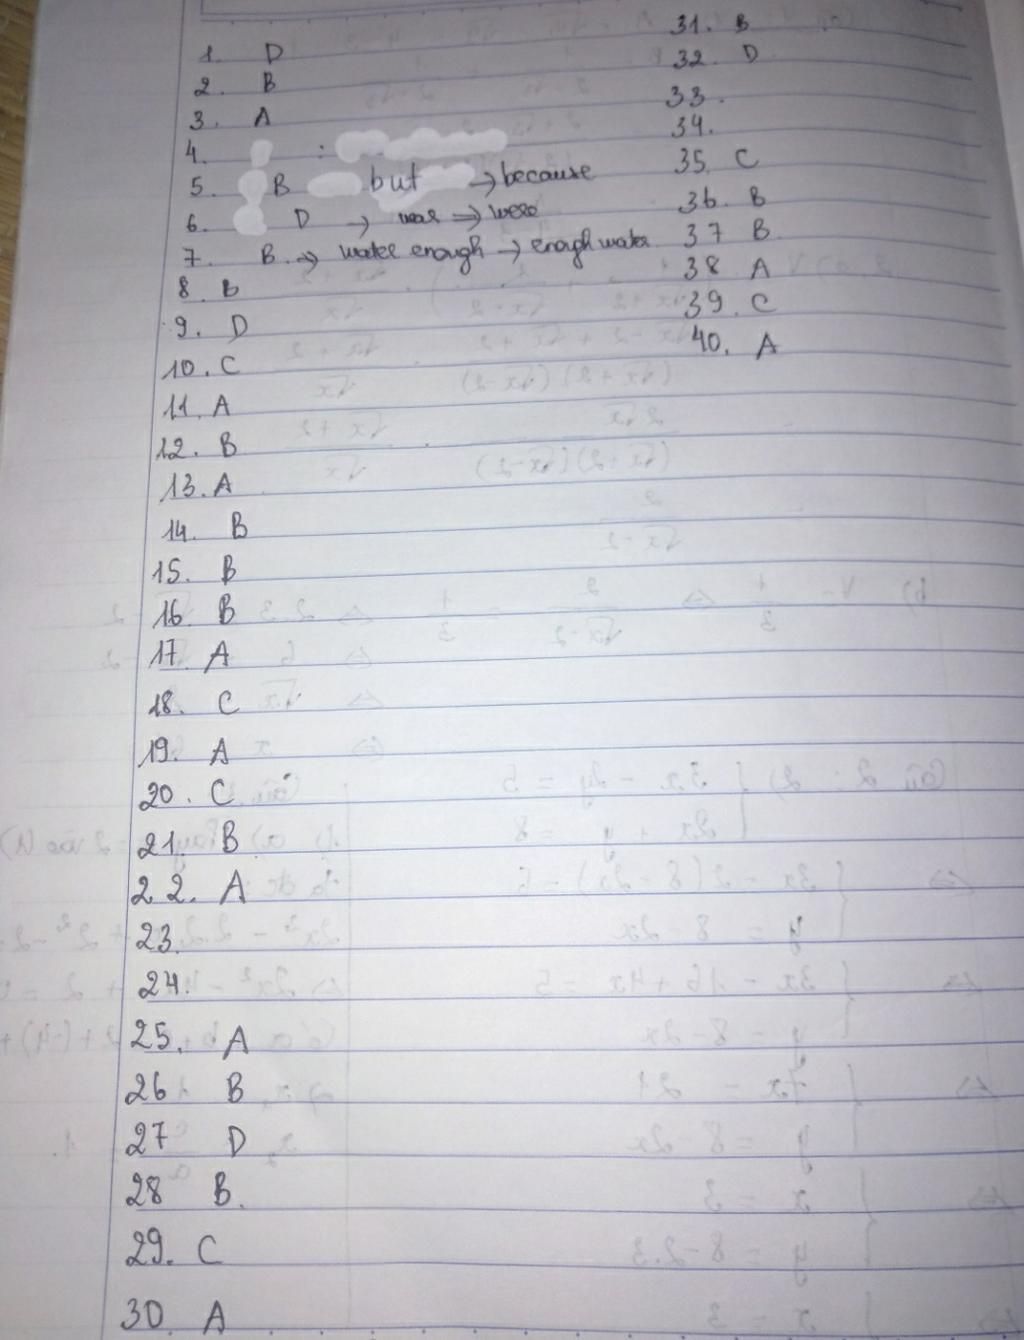 1. D
2. B
3. A
4. :
5. B but → because
6. D → was → were
7. B. → water enough → enough water
8. B
9. D
10. C
11. A
12. B
13. A
14. B
15. B
16 B
17. A
18. C
19. A
20. C
21. B
22. A
23.
24.
25. A
26 B
27 D
28 B.
29. C
30 A
31. B
32. D
33.
34.
35. C
36. B
37 B.
38 A
39. C
40. A